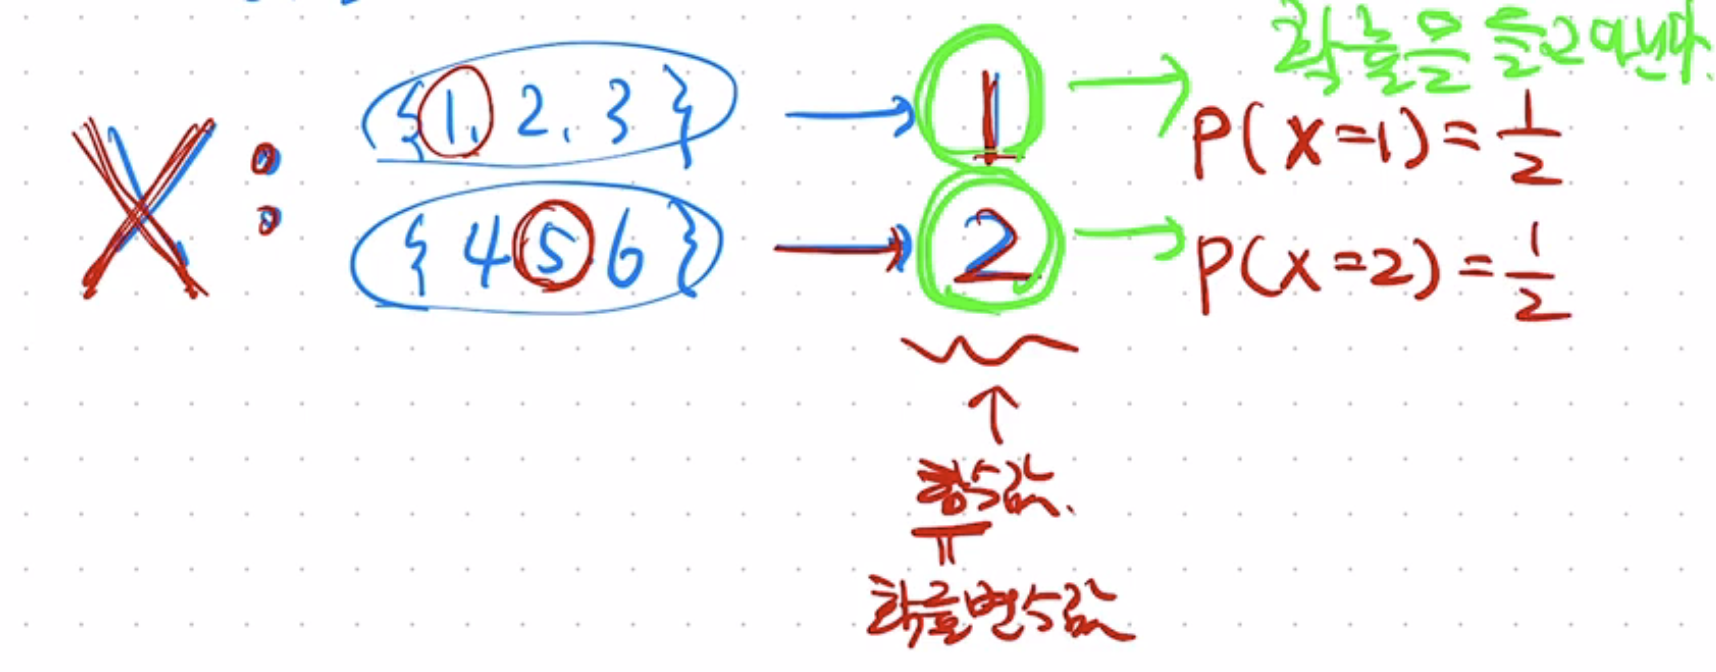 확률을 들고 다닌다.
X : {1, 2, 3} → 1 → P(X=1) = 1/2
{4 5 6} → 2 → P(X=2) = 1/2
↑
함수값.
=
확률변수값